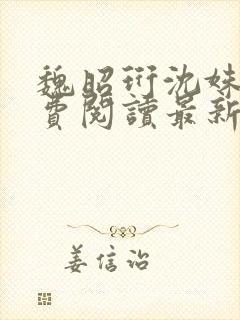 魏昭珩沈妹
費閱讀最新
姜信詒